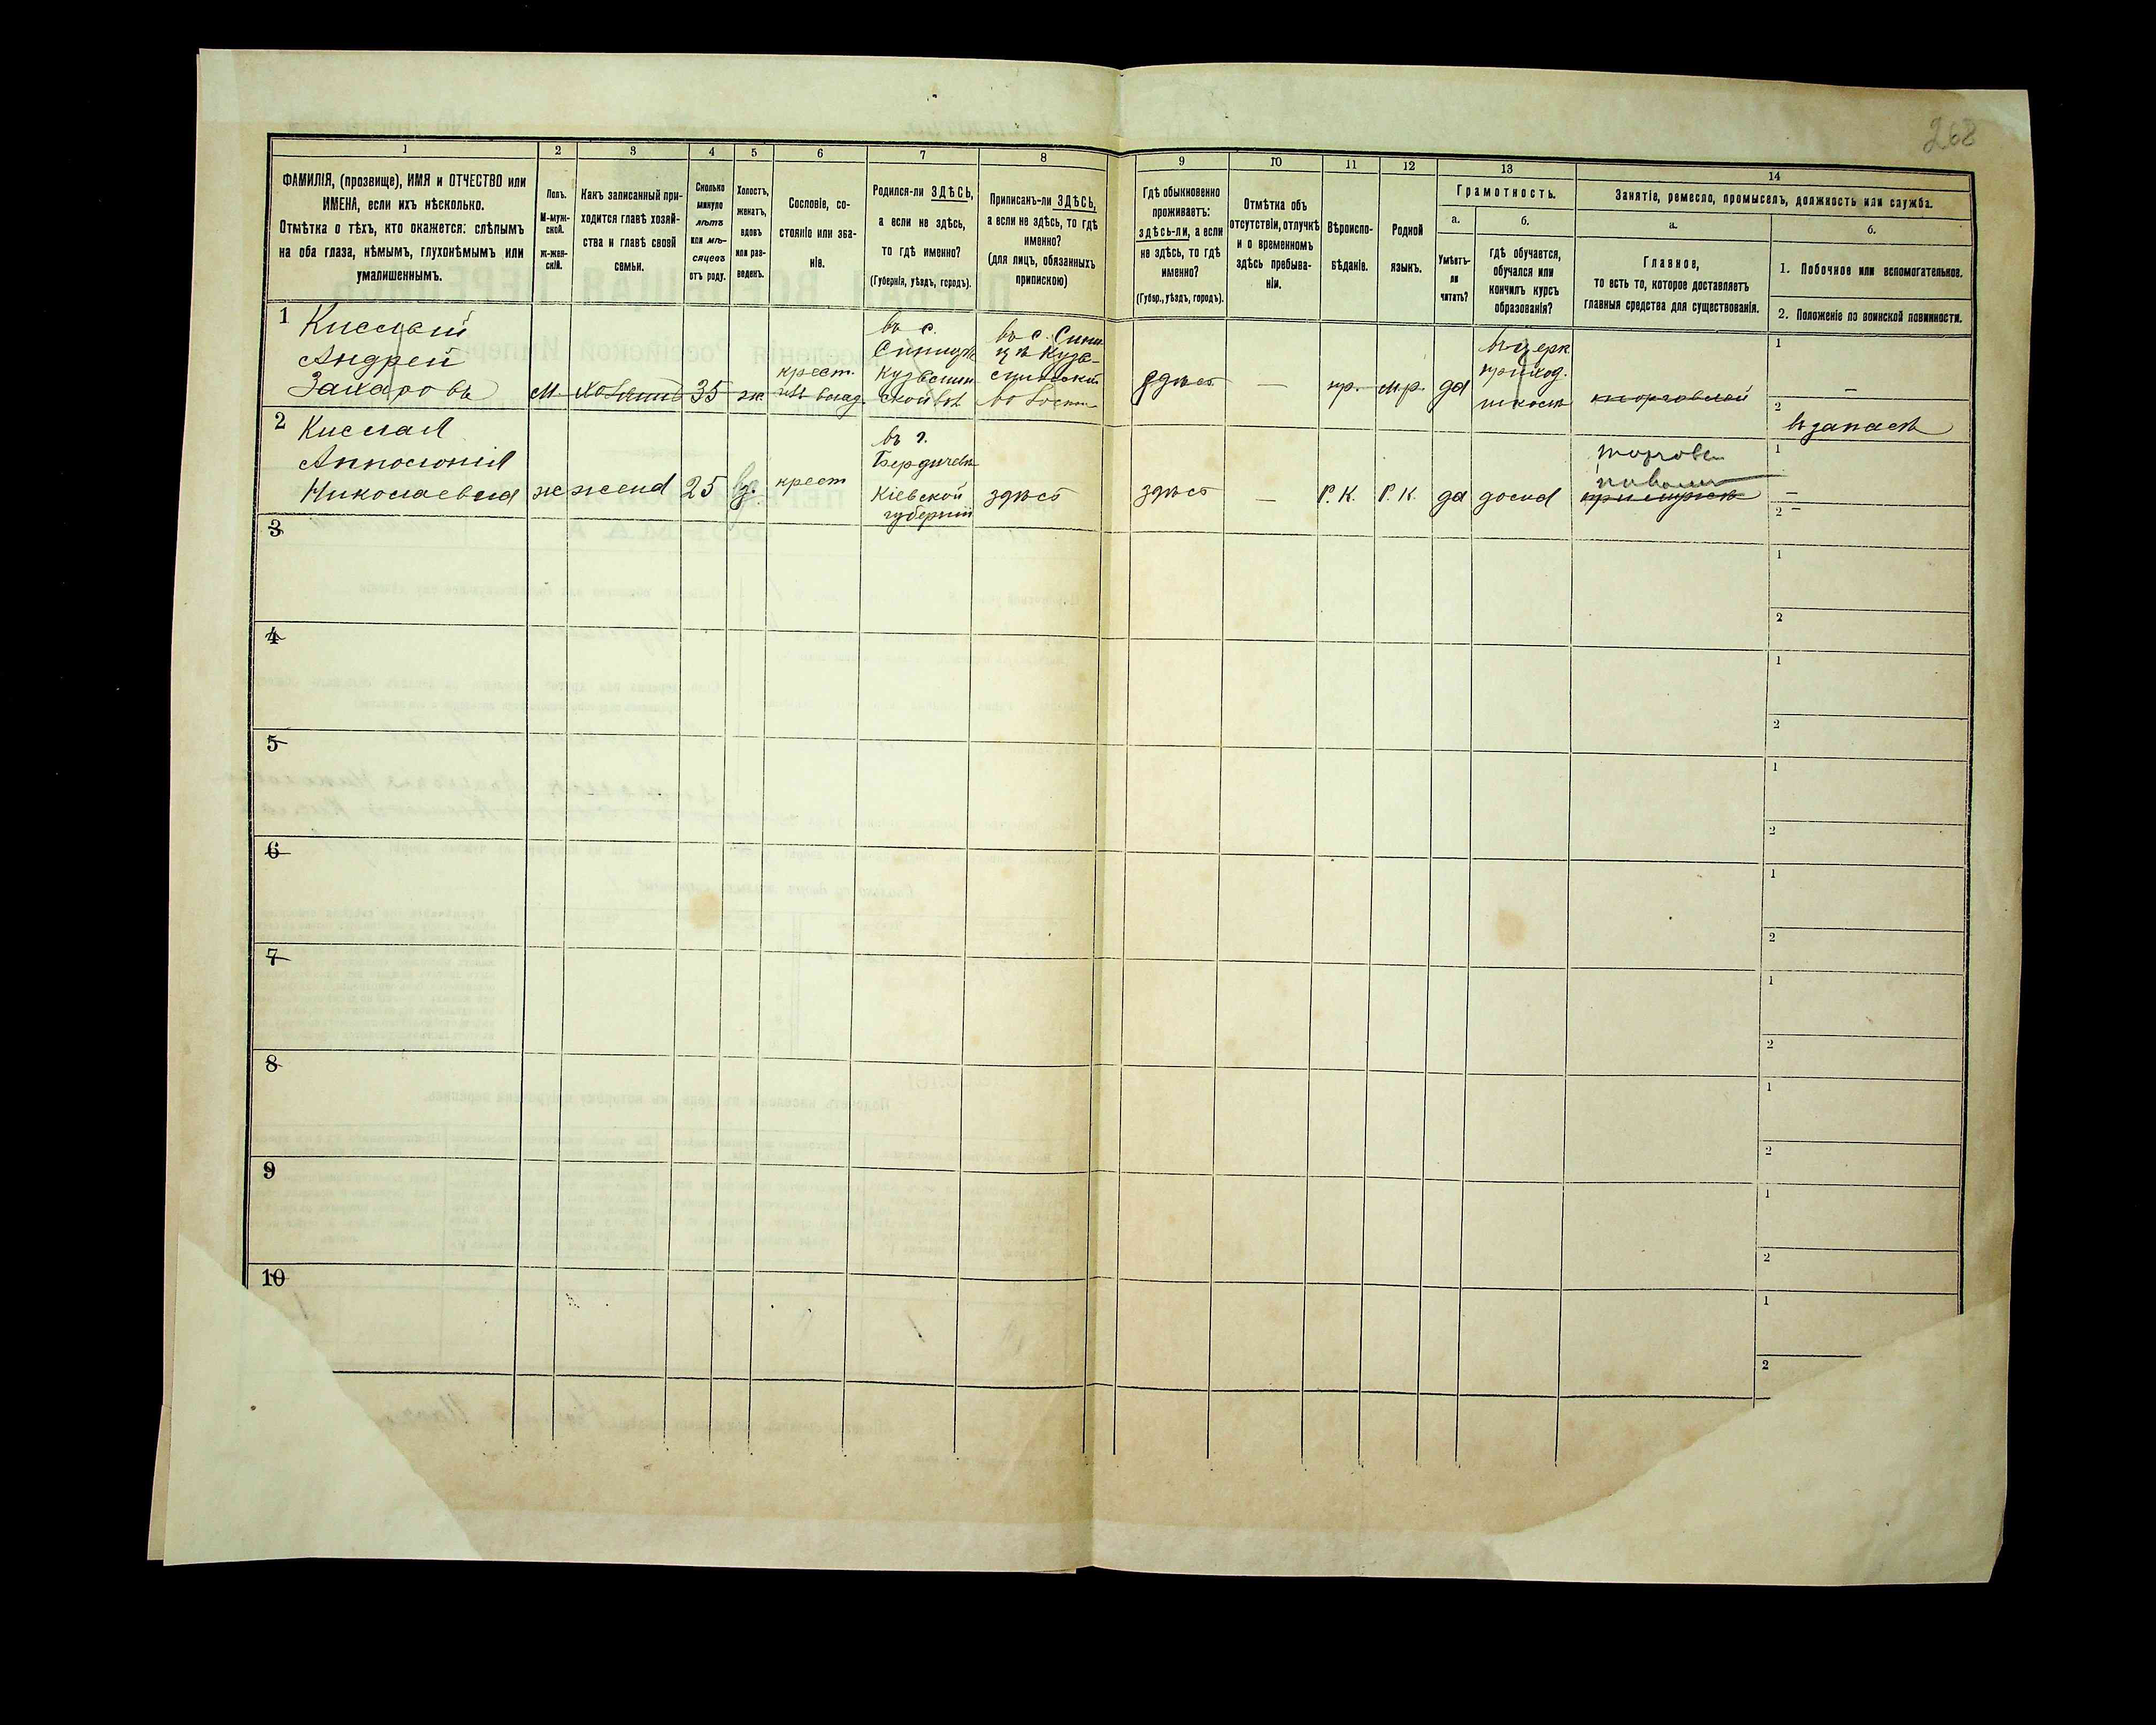 268
1 2 3 4 5 6 7 8 9 10 11 12 13 14
ФАМИЛІЯ, (прозвище), ИМЯ и ОТЧЕСТВО или
ИМЕНА, если ихъ нѣсколько.
Отмѣтка о тѣхъ, кто окажется: слѣпымъ
на оба глаза, нѣмымъ, глухонѣмымъ или
умалишеннымъ.
Полъ.
М-муж-
ской.
ж-жен-
скій.
Какъ записанный при-
ходится главѣ хозяй-
ства и главѣ своей
семьи.
Сколько
минуло
лѣтъ
или мѣ-
сяцевъ
отъ роду.
Холостъ,
женатъ,
вдовъ
или раз-
веденъ.
Сословіе, со-
стояніе или зва-
ніе.
Родился-ли ЗДѢСЬ,
а если не здѣсь,
то гдѣ именно?
(Губернія, уѣздъ, городъ).
Приписанъ-ли ЗДѢСЬ,
а если не здѣсь, то гдѣ
именно?
(для лицъ, обязанныхъ
припискою)
Гдѣ обыкновенно
проживаетъ:
здѣсь-ли, а если
не здѣсь, то гдѣ
именно?
(Губер., уѣздъ, городъ).
Отмѣтка объ
отсутствіи, отлучкѣ
и о временномъ
здѣсь пребыва-
ніи.
Вѣроиспо-
вѣданіе.
Родной
языкъ.
Грамотность.
а.
Умѣетъ-
ли
читать?
б.
гдѣ обучается,
обучался или
кончилъ курсъ
образованія?
Занятіе, ремесло, промыселъ, должность или служба.
а.
Главное,
то есть то, которое доставляетъ
главныя средства для существованія.
б.
1. Побочное или вспомогательное.
2. Положеніе по воинской повинности.
1
Кислый
Андрей
Захаровъ
м.
хозяинъ
35
ж.
крест.
въ с.
въ с.
здѣсь
—
пр.
м.р.
да
въ церк.
приход.
1
—
2
въ запасѣ
2
Кислая
Апполонія
Николаевна
ж
жена
25
вд.
крест
въ г.
Бердичевѣ
Кіевской
губерніи
здѣсь
здѣсь
—
Р. К.
Р. К.
да
дома
1
—
2 —
3
1
2
4
1
2
5
1
2
6
1
2
7
1
2
8
1
2
9
1
2
10
1
2